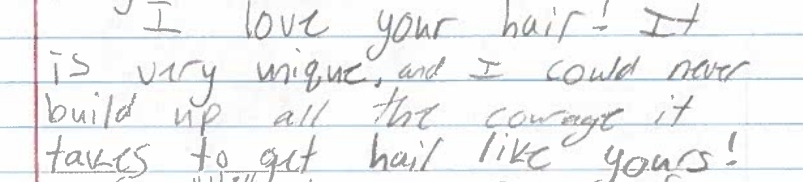 I love your hair! It
is very unique, and I could never
build up all the courage it
takes to get hair like yours!